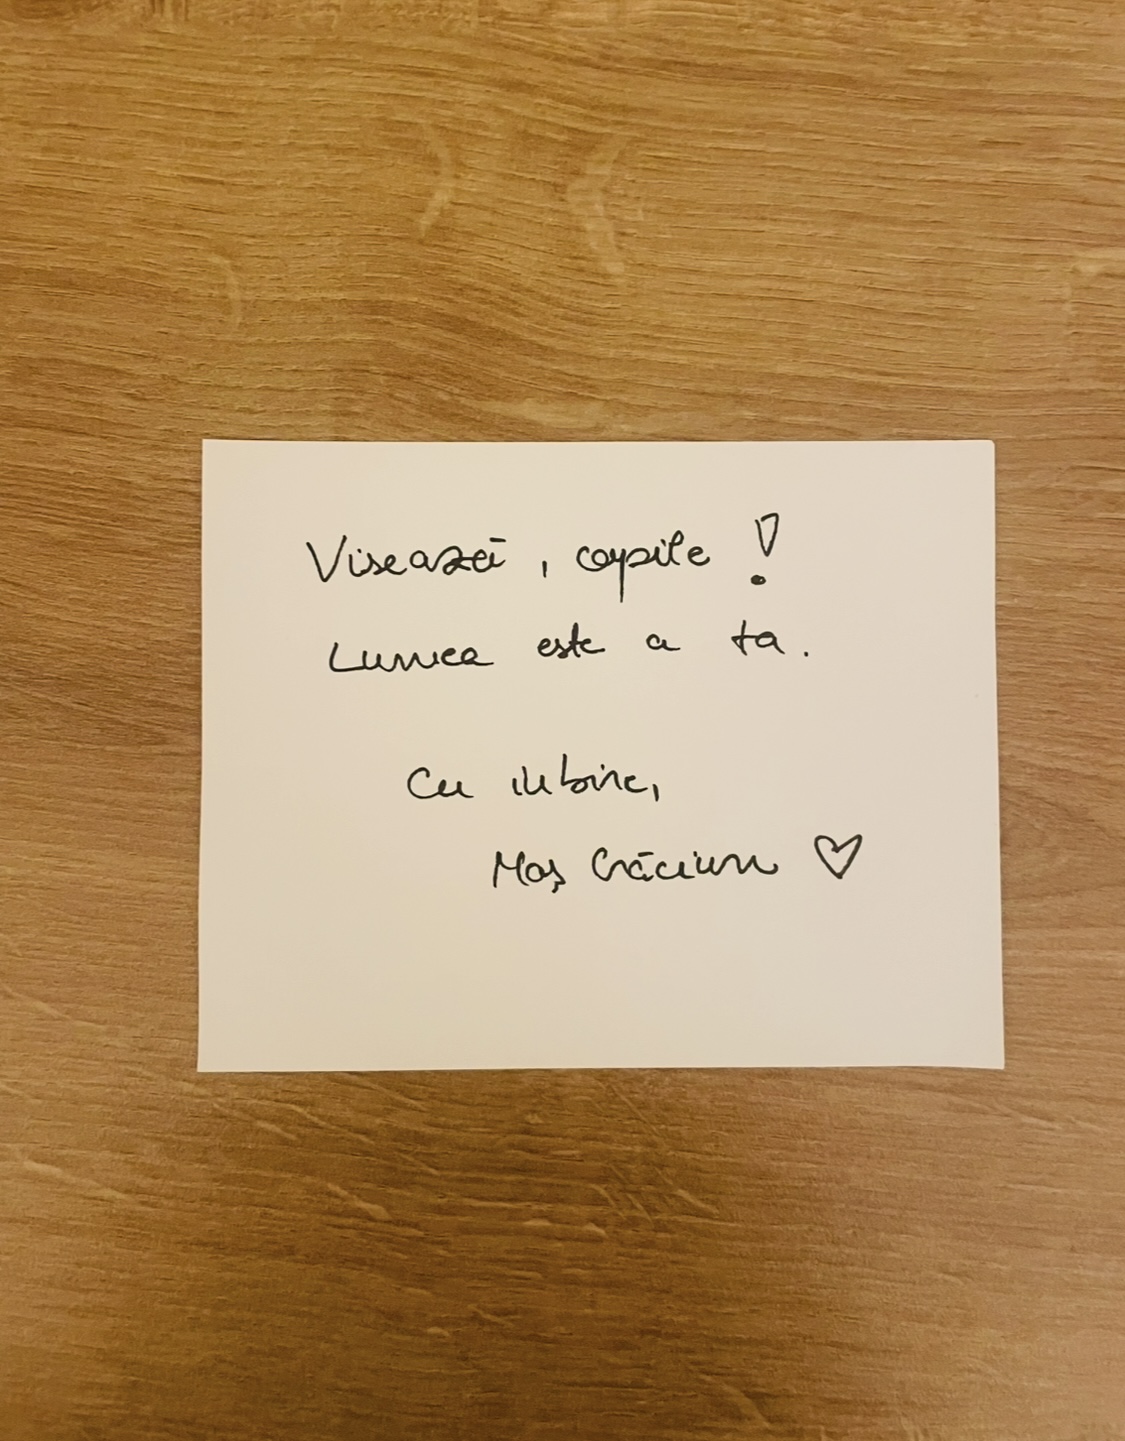 Visează, copile!
Lumea este a ta.
Cu iubire,
Moș Crăciun ♡